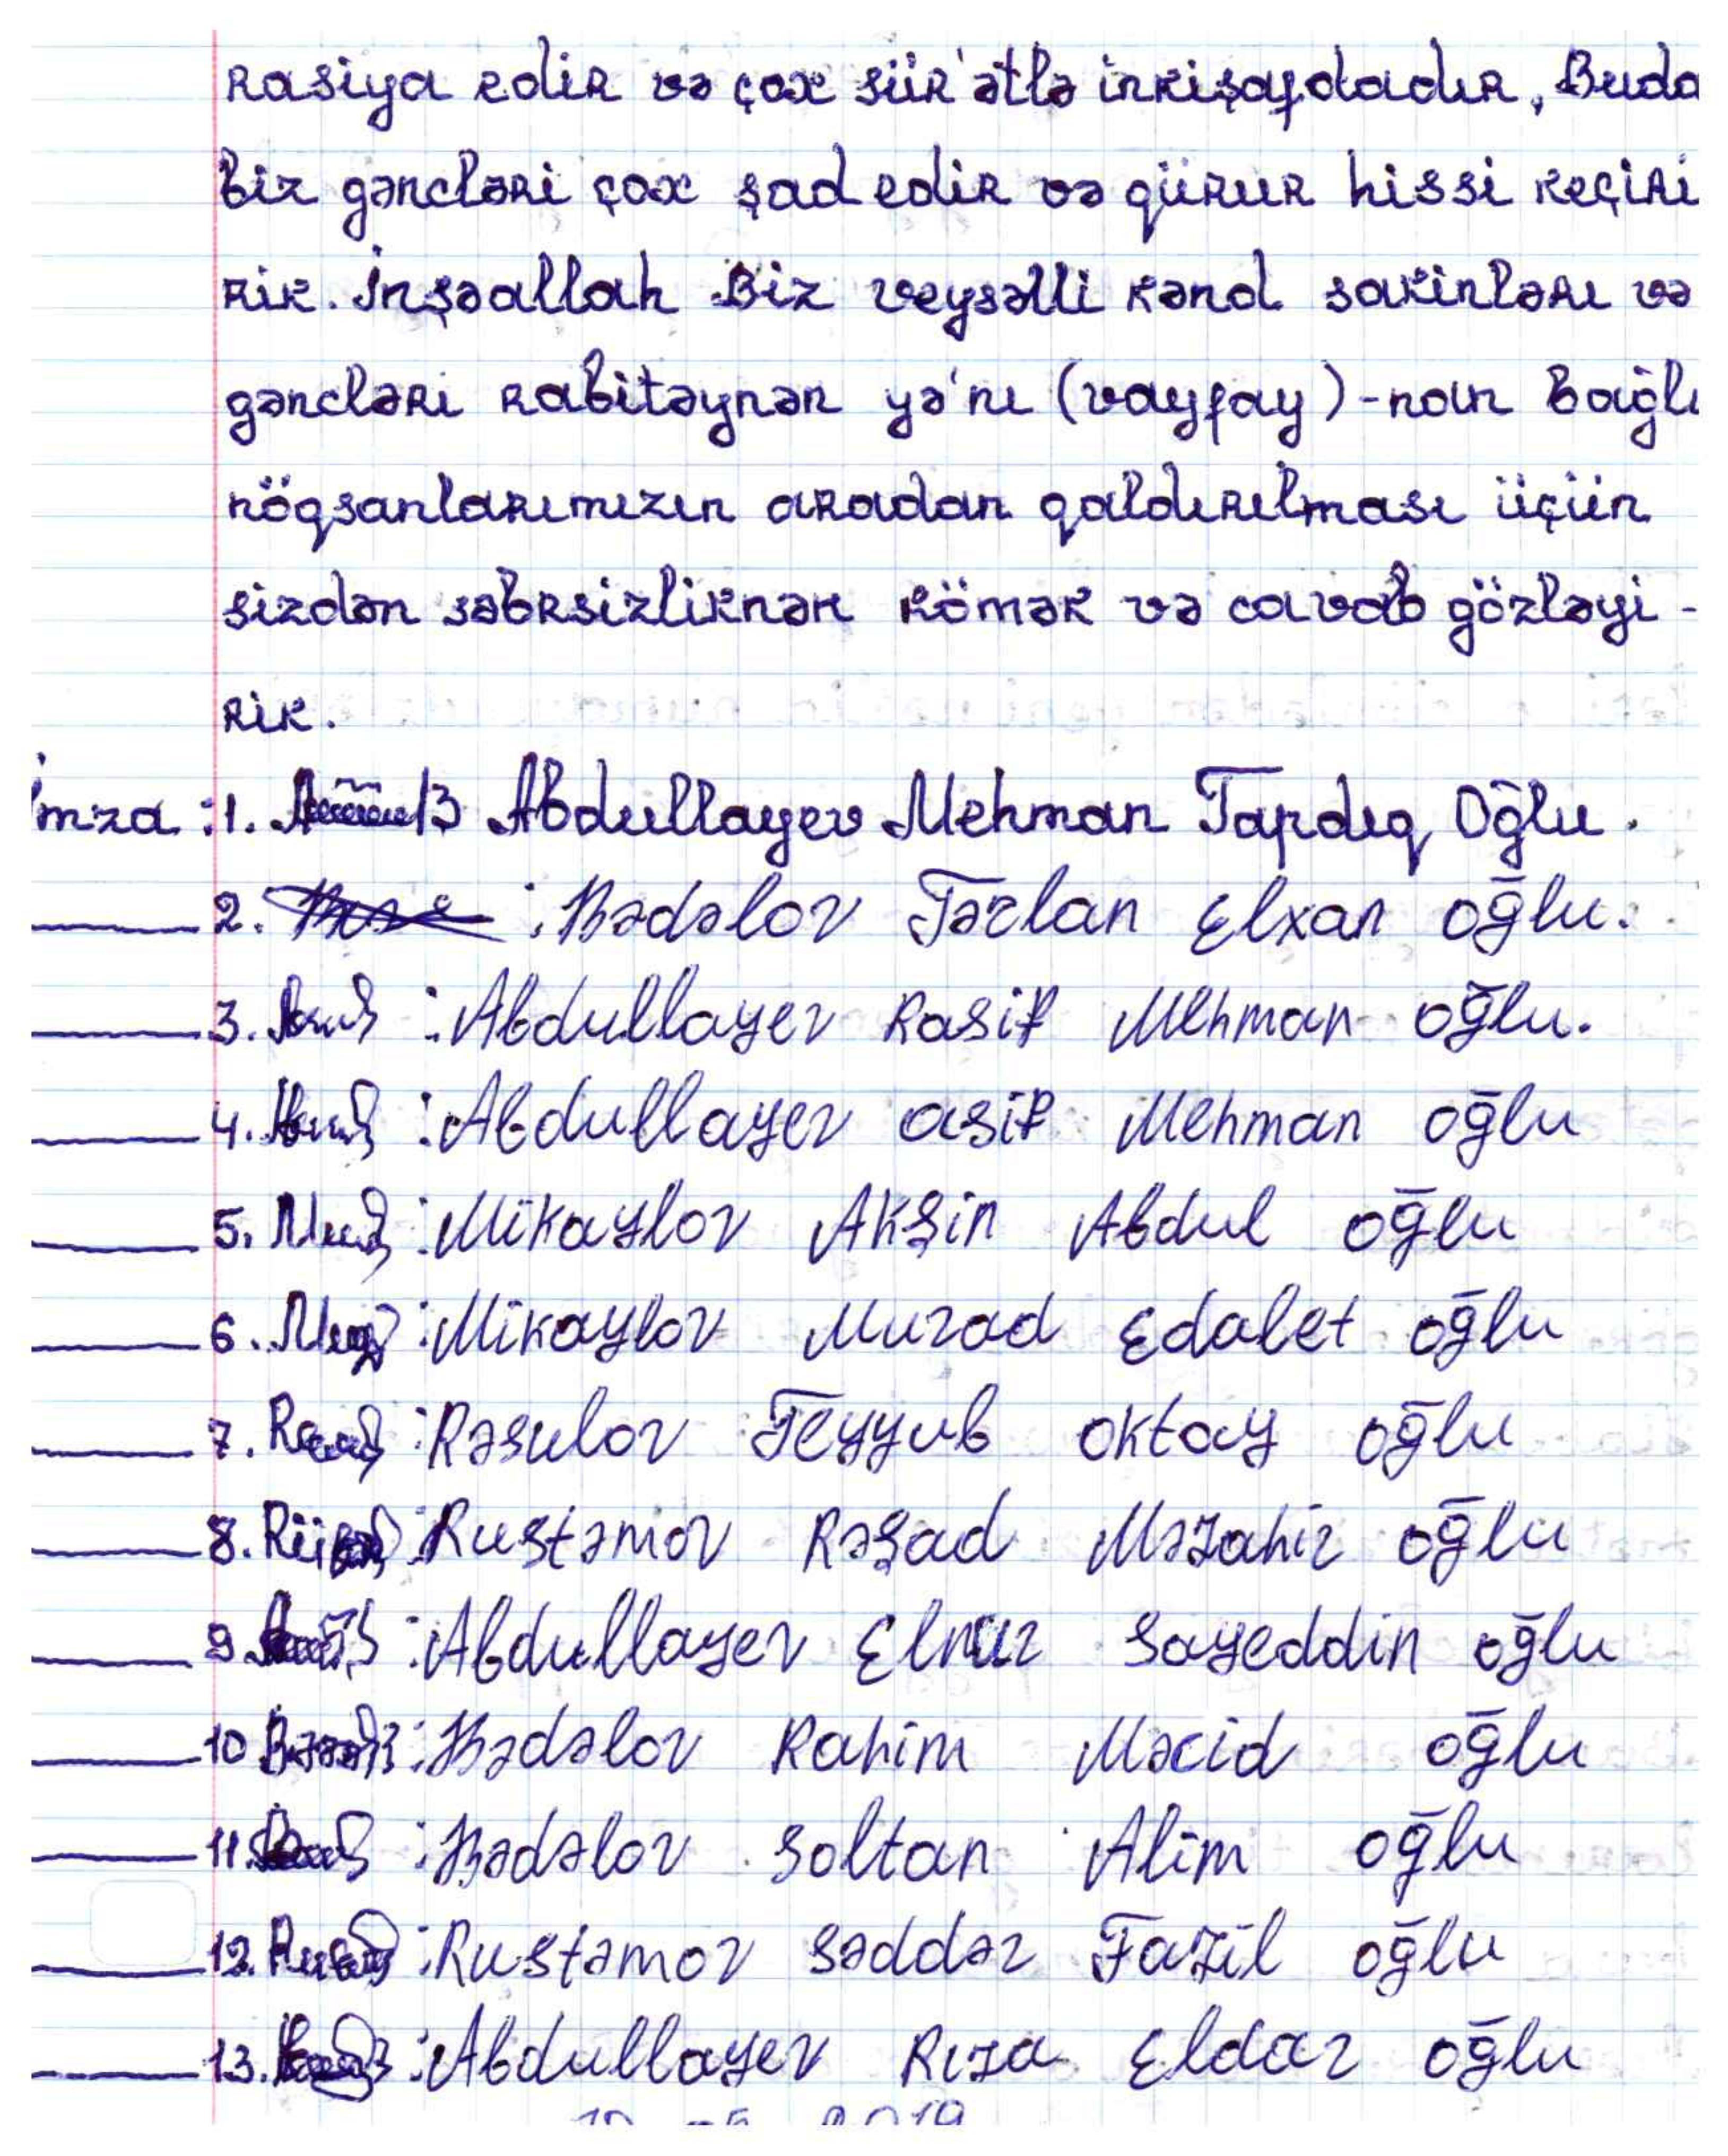 rasiya edir və çox sür'ətlə inkişafdadır, Buda
biz gəncləri çox şad edir və qürur hissi keçiri
rik. İnşəallah Biz veysəlli kənd sakinləri və
gəncləri rabitəynən yə'nı (vayfay)-nan Bağlı
nögsanlarımızın aradan qaldırılması üçün
sizdən səbrsizliknən kömək və cavab gözləyi-
rik.
İmza: 1. Abdullayev Mehman Tapdıq Oğlu.
2. : Bədəlov Tərlan Elxan oğlu.
3. : Abdullayev Rasif Mehman oğlu.
4. : Abdullayev asif Mehman oğlu
5. : Mikaylov Akşin Abdul oğlu
6. : Mikaylov Murad Edalet oğlu
7. : Rəsulov Teyyub oktay oğlu
8. : Rustəmov Rəşad Məzahir oğlu
9 : Abdullayev Elnur Sayeddin oğlu
10 : Bədəlov Rahim Məcid oğlu
11. : Bədəlov Soltan Alim oğlu
12. : Rustəmov Səddər Fazil oğlu
13. : Abdullayev Rıza Eldar oğlu